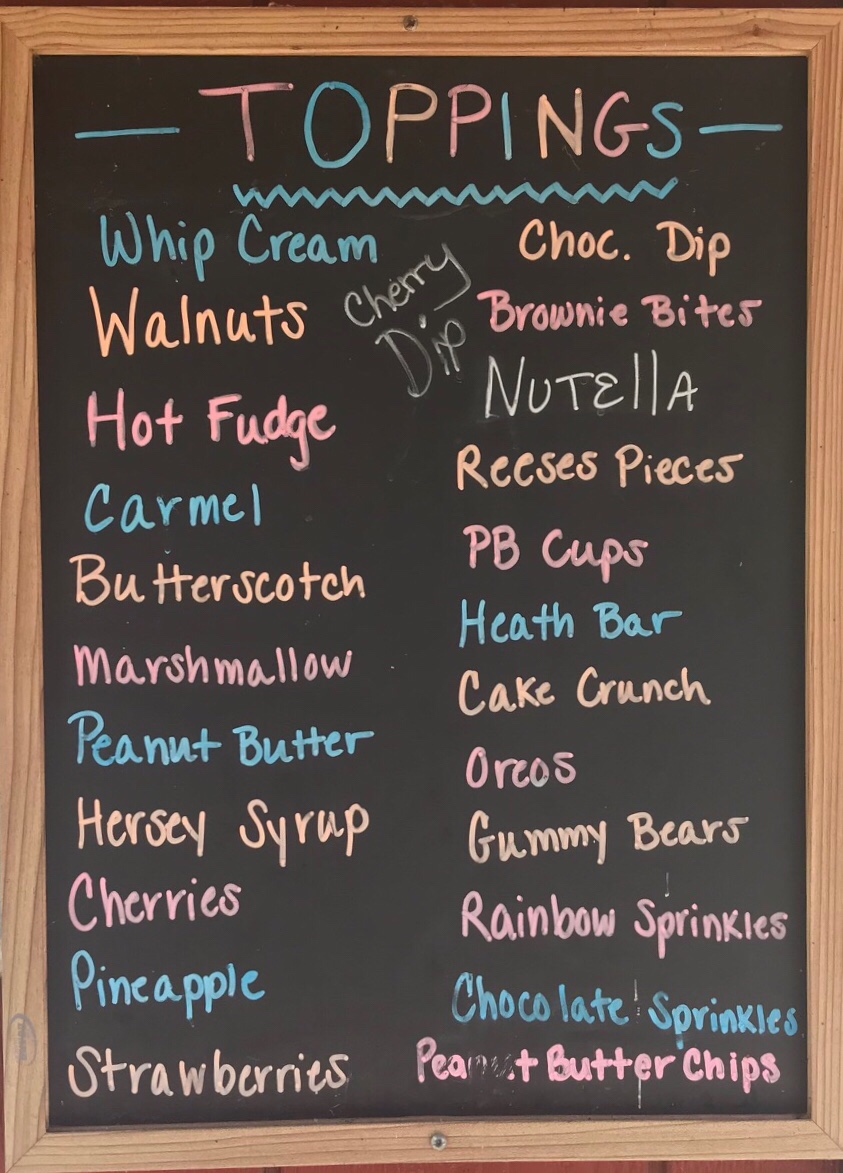 TOPPINGS
Whip Cream
Walnuts
Hot Fudge
Carmel
Butterscotch
Marshmallow
Peanut Butter
Hersey Syrup
Cherries
Pineapple
Strawberries
Cherry
Dip
Choc. Dip
Brownie Bites
NUTEllA
Reeses Pieces
PB Cups
Heath Bar
Cake Crunch
Oreos
Gummy Bears
Rainbow Sprinkles
Chocolate Sprinkles
Peanut Butter Chips